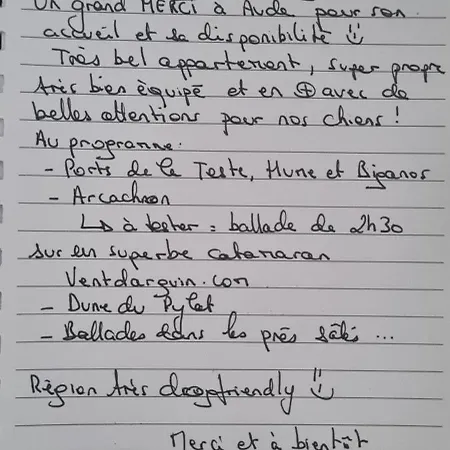 Un grand MERCI à Aude pour son
accueil et sa disponibilité
Très bel appartement, super propre
très bien équipé et en ⊕ avec de
belles attentions pour nos chiens !
Au programme :
- Ports de la Teste, Hume et Biganos
- Arcachon
↳ à tester : ballade de 2h30
sur un superbe catamaran
Ventdarguin.com
- Dune du Pylat
- Ballades dans les prés salés ...
Région très dogfriendly
Merci et à bientôt